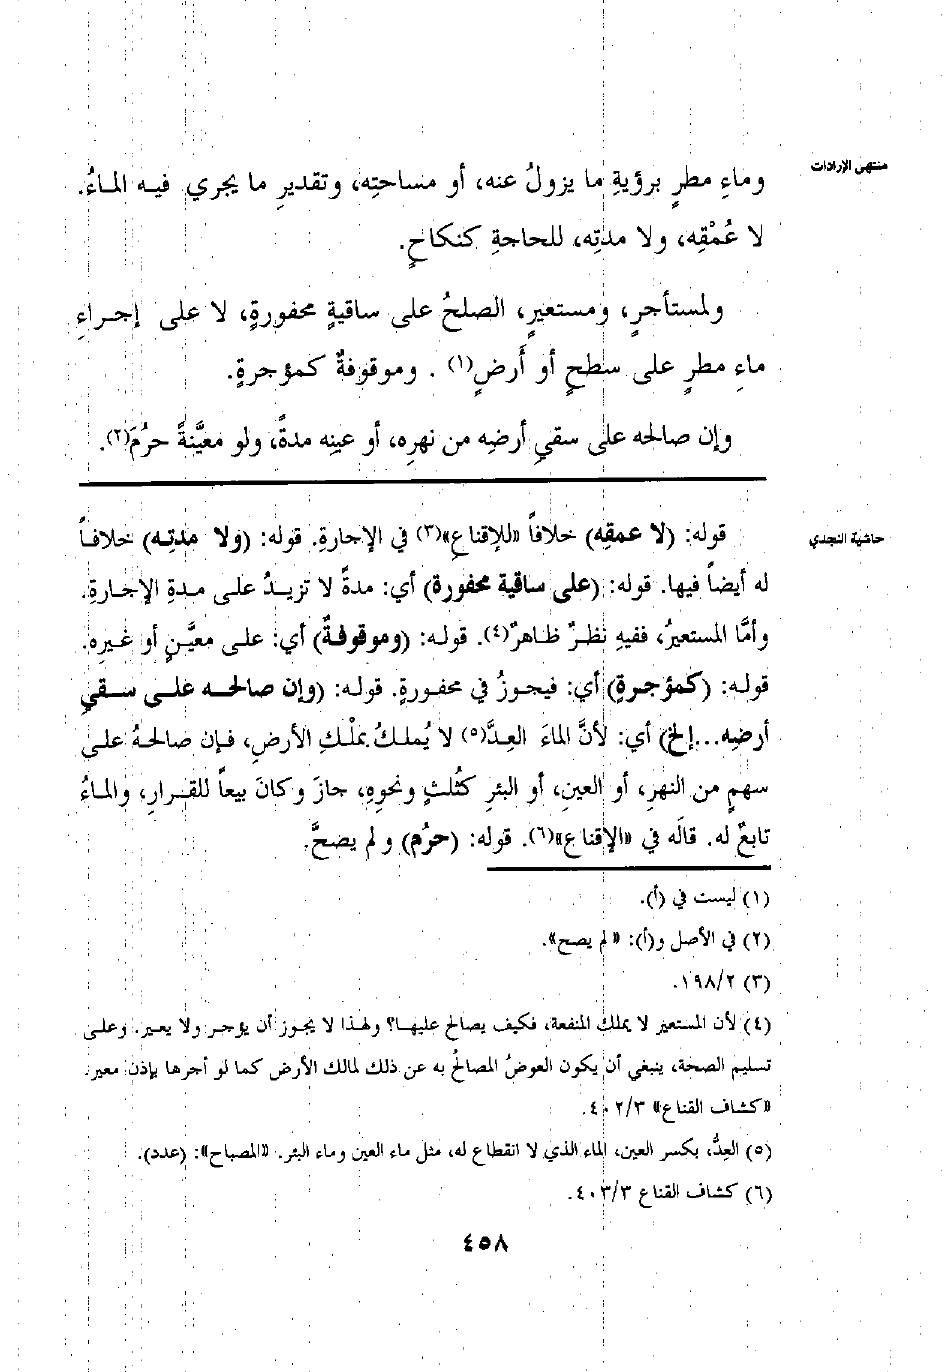 منتهى الإرادات
وماءِ مطرٍ برؤيةِ ما يزولُ عنه، أو مساحتِه، وتقديرِ ما يجري فيه الماءُ.
لا عُمْقِه، ولا مدتِه، للحاجةِ كنكاحٍ.
ولمستأجرٍ، ومستعيرٍ، الصلحُ على ساقيةٍ محفورةٍ، لا على إجراءِ
ماءِ مطرٍ على سطحٍ أو أَرضٍ(١) . وموقوفةٌ كمؤجرةٍ.
وإن صالحه على سقيِ أرضِه من نهرِه، أو عينِه مدةً، ولو معيَّنةً حرُمَ(٢).
حاشية النجدي
قوله: (لا عمقِه) خلافاً «للإقناعِ»(٣) في الإجارةِ. قوله: (ولا مدتِه) خلافاً
له أيضاً فيها. قوله: (على ساقية محفورة) أي: مدةً لا تزيدُ على مدةِ الإجارةِ.
وأمَّا المستعيرُ، ففيهِ نظرٌ ظاهرٌ(٤). قوله: (وموقوفةٌ) أي: على معيَّنٍ أو غيرِه.
قوله: (كمؤجرةٍ) أي: فيجوزُ في محفورةٍ. قوله: (وإن صالحه على سقيِ
أرضِه...إلخ) أي: لأنَّ الماءَ العِدَّ(٥) لا يُملكُ بملْكِ الأرضِ، فإن صالحهُ على
سهمٍ من النهرِ، أو العينِ، أو البئرِ كثُلثٍ ونحوِهِ، جازَ وكانَ بيعاً للقرارِ، والماءُ
تابعٌ له. قالَه في «الإقناعِ»(٦). قوله: (حرُم) ولم يصحَّ.
(١) ليست في (أ).
(٢) في الأصل و(أ): «لم يصح».
(٣) ١٩٨/٢.
(٤) لأن المستعير لا يملك المنفعة، فكيف يصالح عليها؟ ولهذا لا يجوز أن يؤجر ولا يعير. وعلى
تسليم الصحة، ينبغي أن يكون العوضُ المصالحُ به عن ذلك لمالك الأرض كما لو أجرها بإذن معير.
«كشاف القناع» ٤٠٢/٣.
(٥) العِدُّ، بكسر العين، الماء الذي لا انقطاع له، مثل ماء العين وماء البئر. «المصباح»: (عدد).
(٦) كشاف القناع ٤٠٣/٣.
٤٥٨